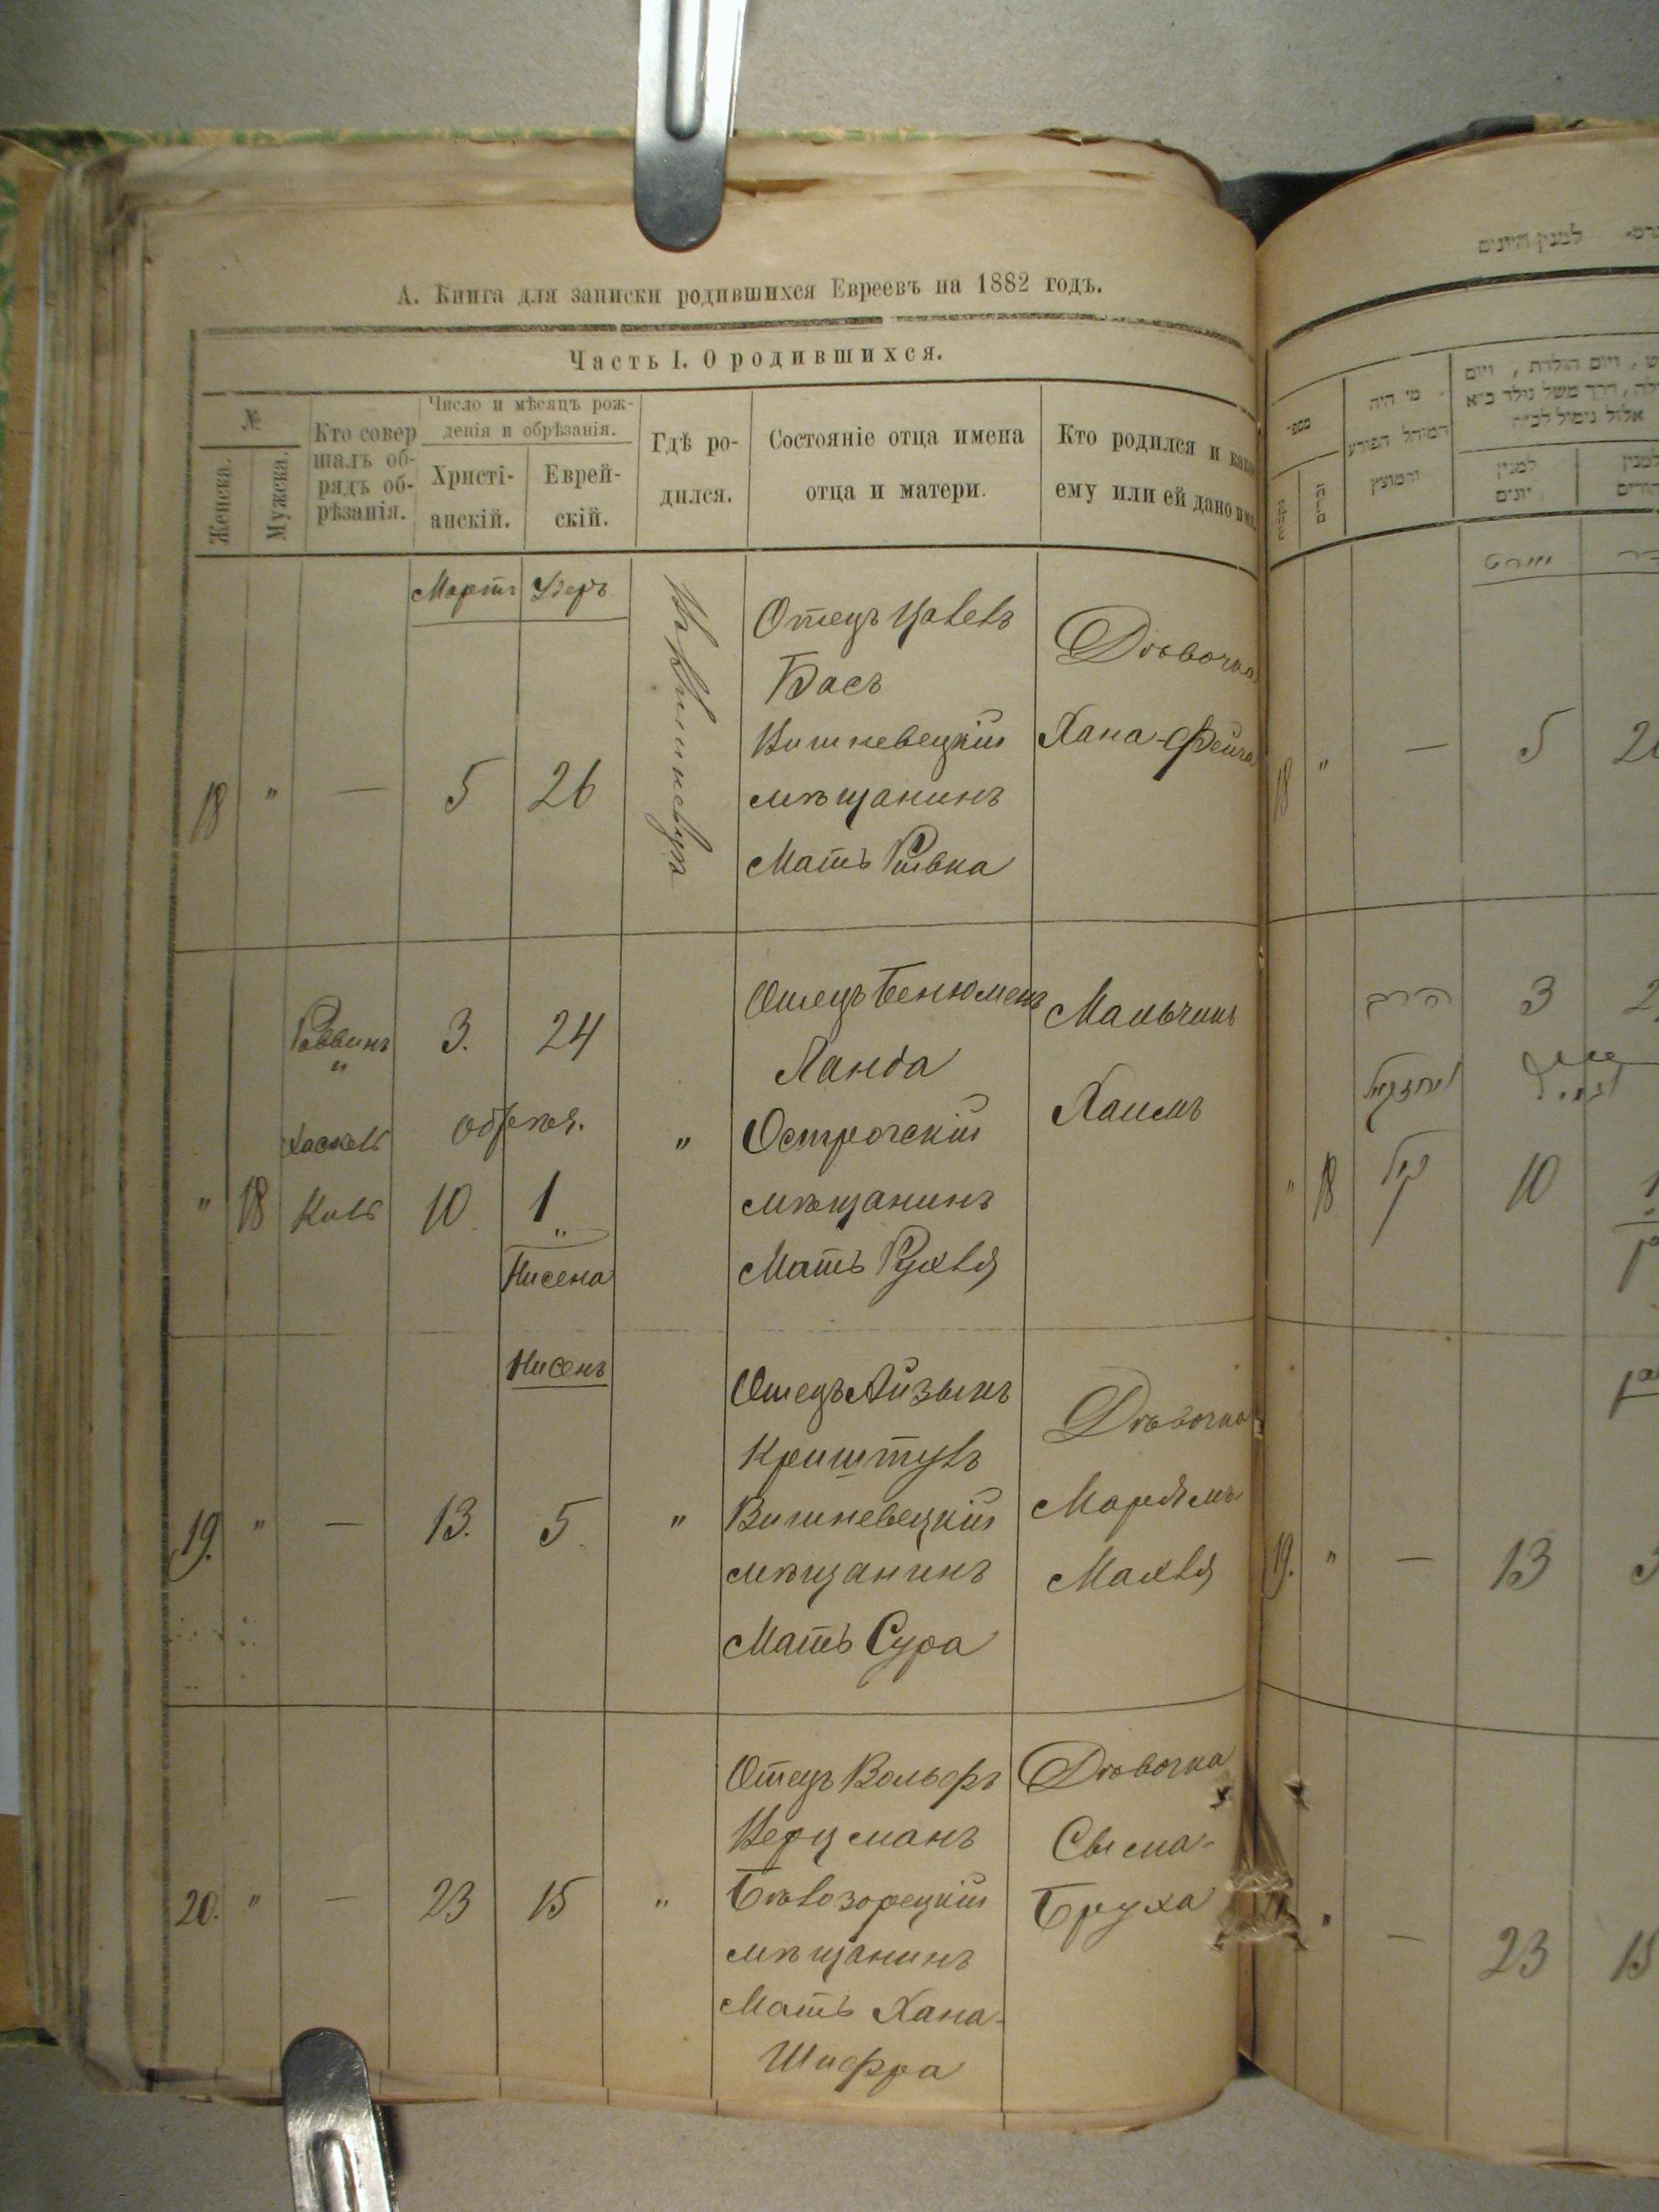 А. Книга для записки родившихся Евреевъ на 1882 годъ.
Часть I. О родившихся.
№
Женска.
Мужска.
Кто совер
шалъ об-
рядъ об-
рѣзанія.
Число и мѣсяцъ рож-
денія и обрѣзанія.
Христі-
анскій.
Еврей-
скій.
Гдѣ ро-
дился.
Состояніе отца имена
отца и матери.
Кто родился и како
ему или ей дано имя
Мартъ
Адеръ
18 " — 5 26
Отецъ
Басъ
Вишневецкій
мѣщанинъ
Мать Ривка
Дѣвочка
Хана-Фейга
" 18
Раввинъ
"
Хаскель
3. 24
обрѣз.
10 1
"
Нисена
"
Отецъ Бенюменъ
Ланда
Острогскій
мѣщанинъ
Мать Рухля
Мальчикъ
Хаимъ
Нисенъ
19. " — 13. 5 "
Отецъ Айзыкъ
Криштулъ
Вишневецкій
мѣщанинъ
Мать Сура
Дѣвочка
Марьямъ
Махля
20. " — 23 15 "
Отецъ Вольфъ
Керцманъ
Бѣлозорецкій
мѣщанинъ
Мать Хана-
Шифра
Дѣвочка
Сыма-
Бруха
למנין היונים
מי היה
המוהל הפורע
והמוצץ
למנין
יונים
נקבות
זכרים
18 " — 5
" 18
הרב
יחזקאל
3
10
19. " — 13
" — 23 15